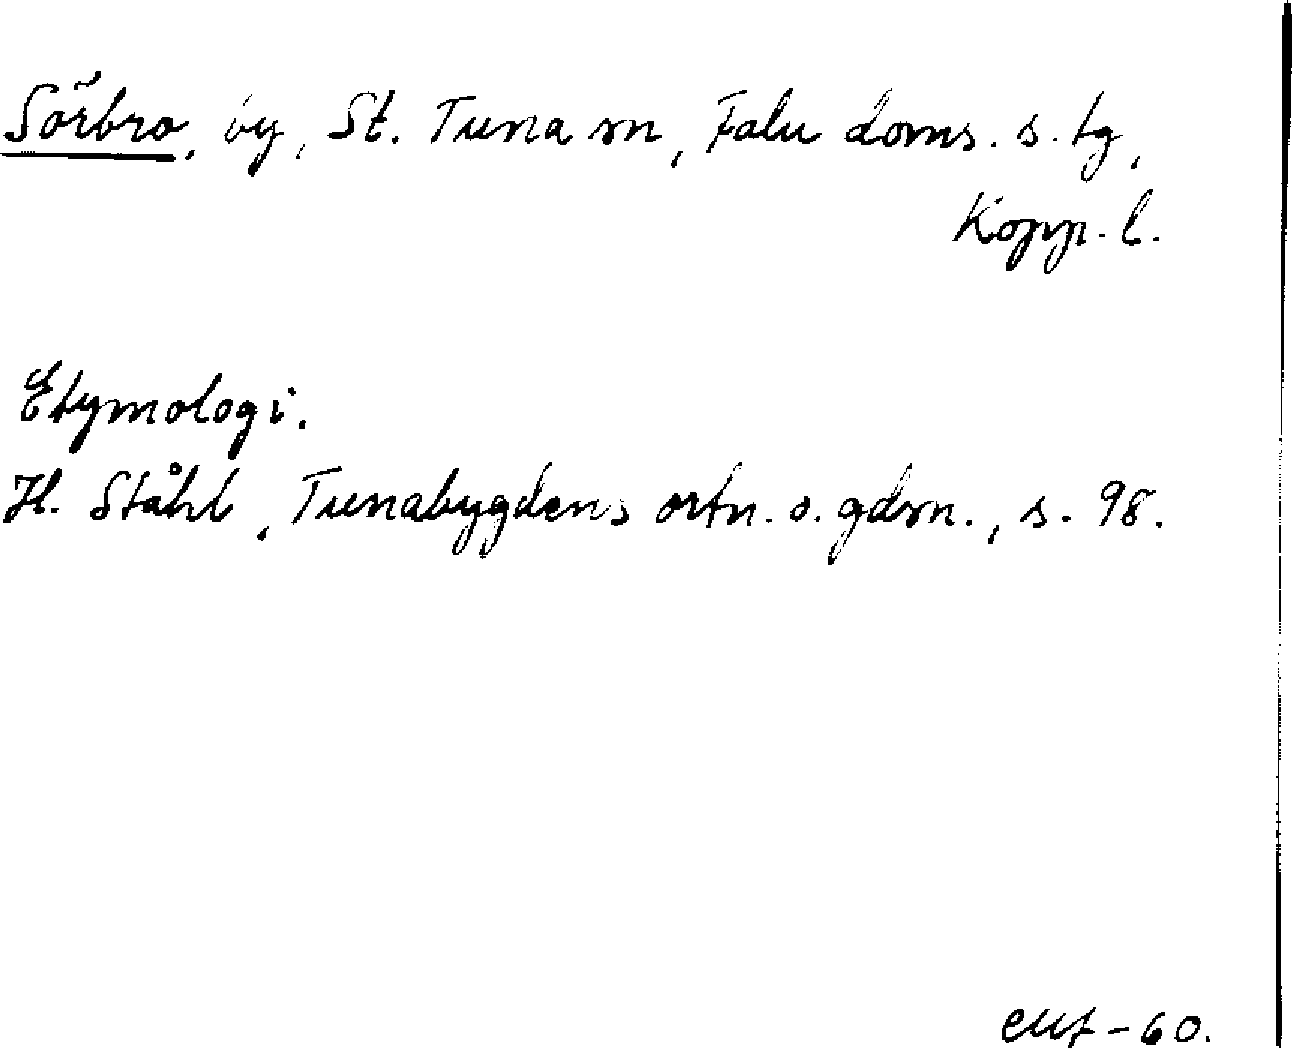 Sörbro, by, St. Tuna sn, Falu doms. s. tg,
Kopp. l.
Etymologi.
H. Ståhl, Tunabygdens ortn. o. gdsn., s. 98.
-60.